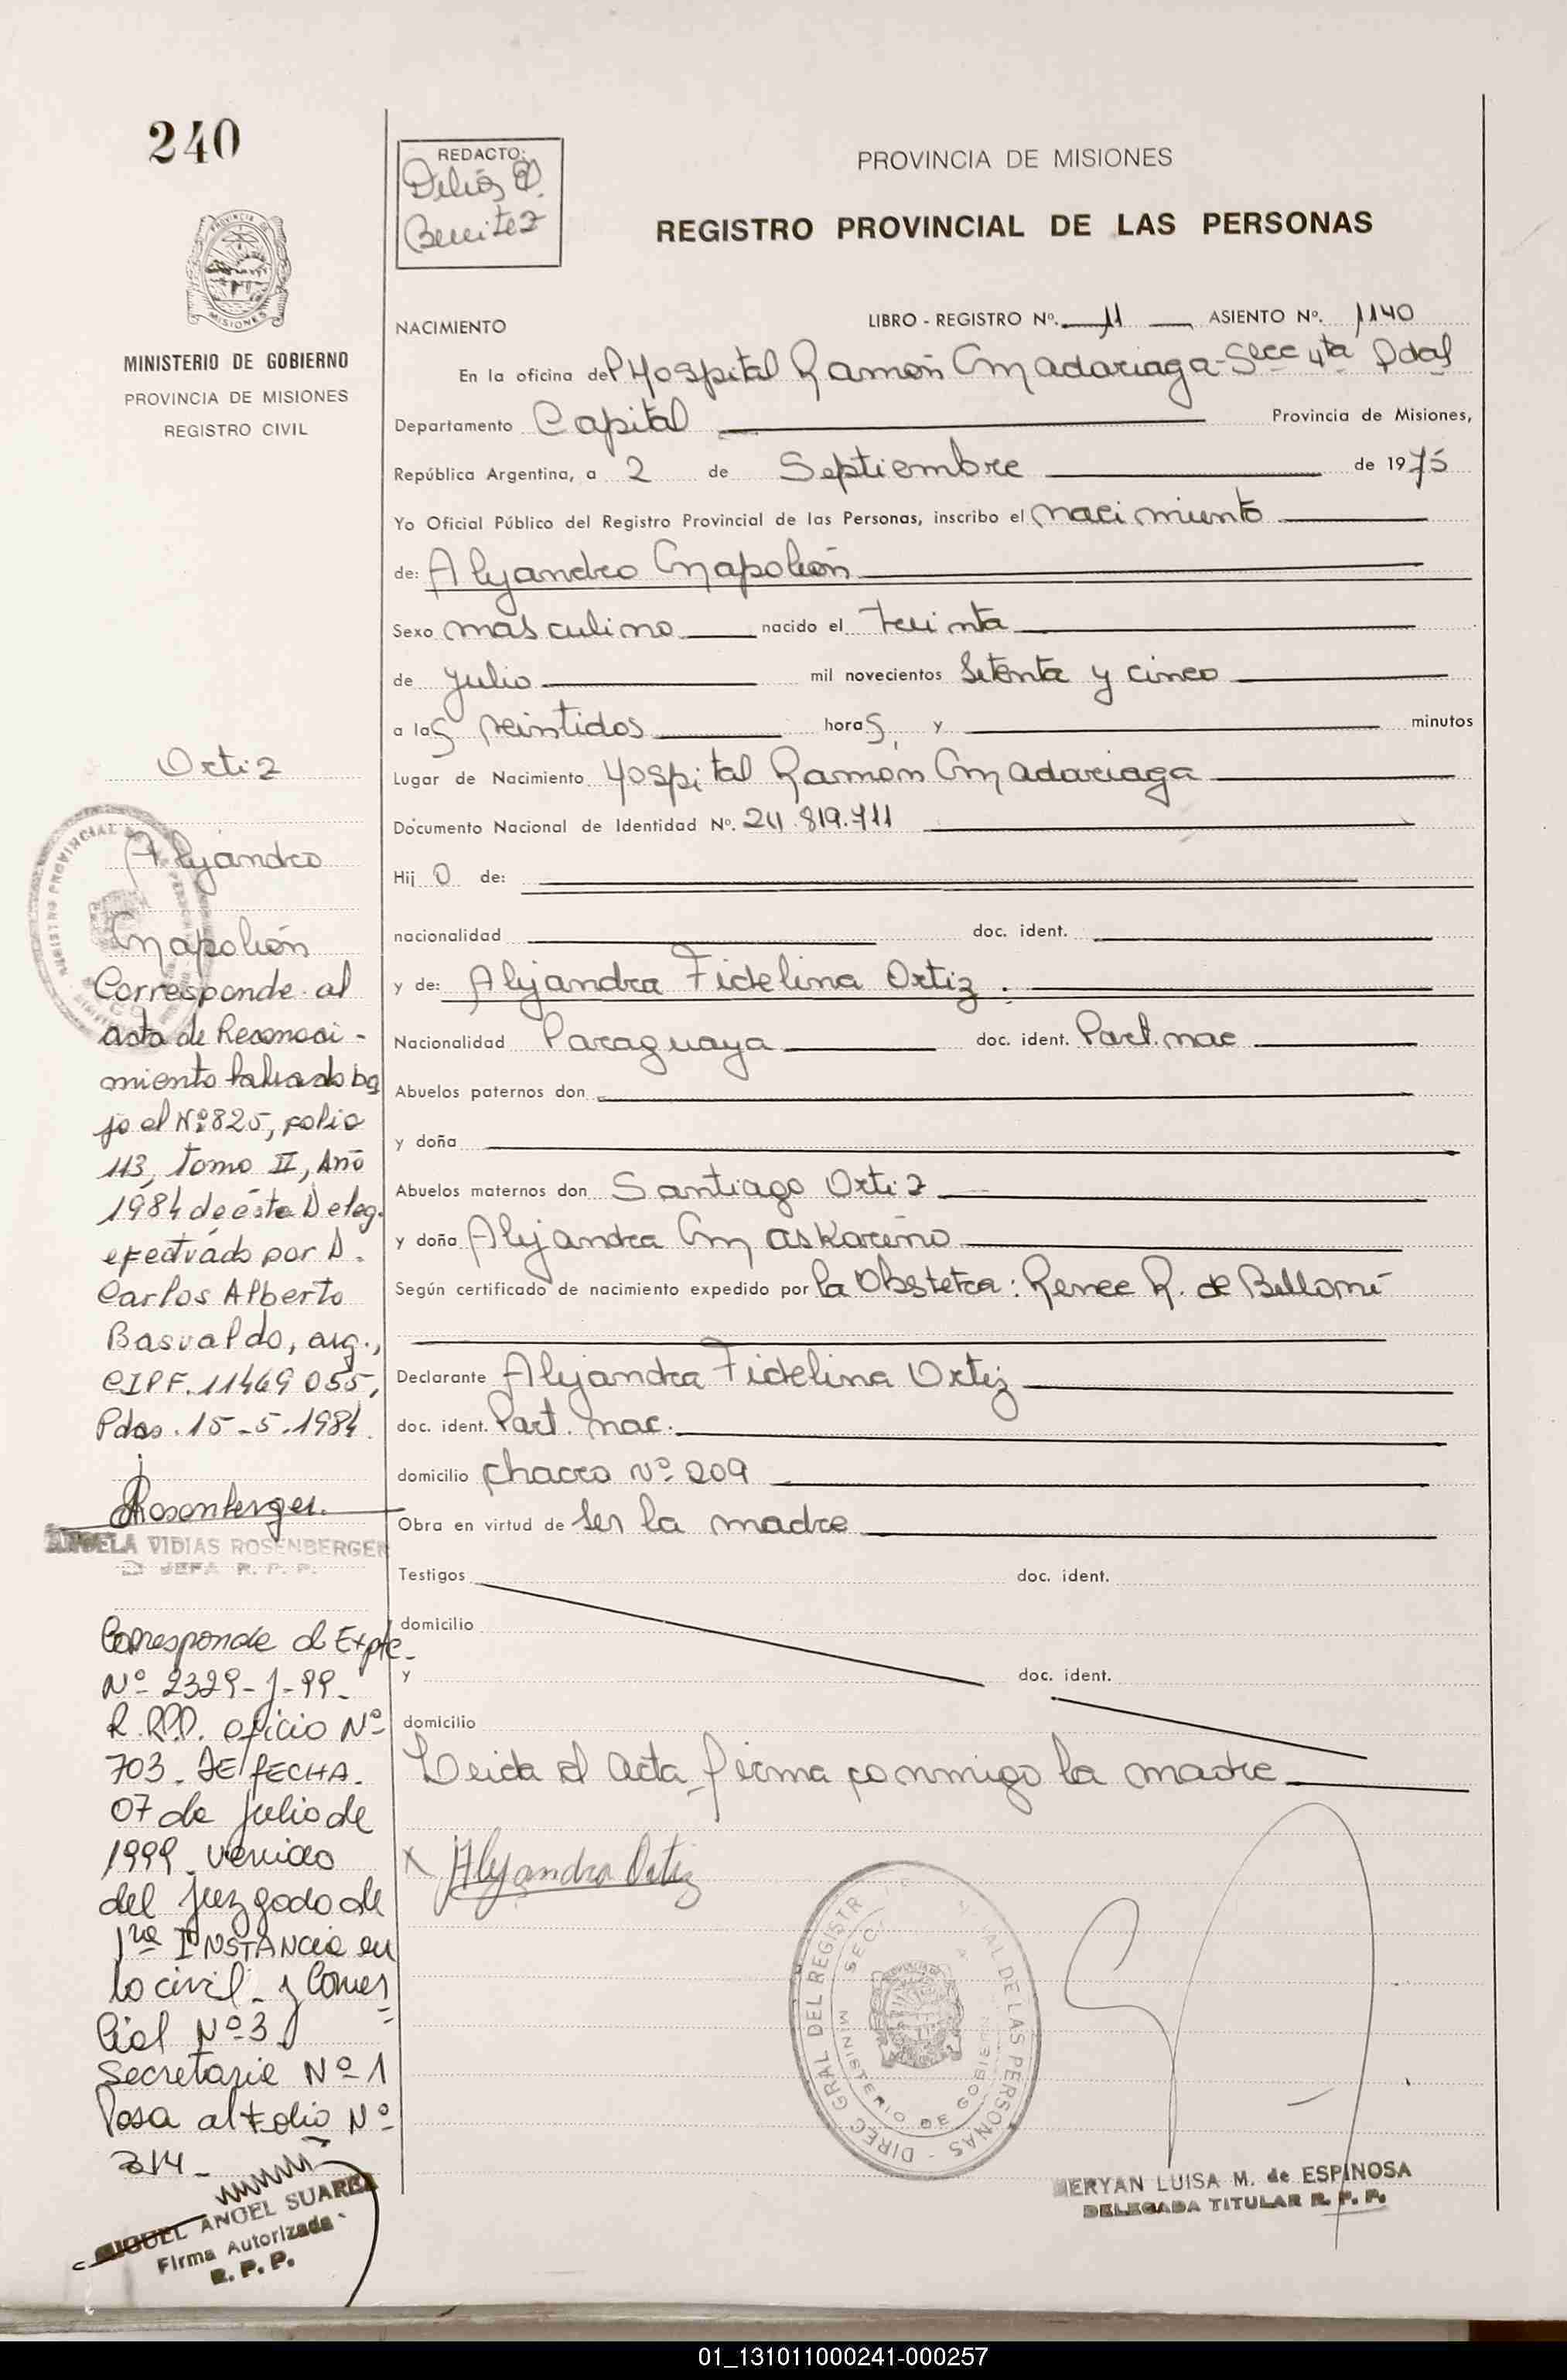 240
MINISTERIO DE GOBIERNO
PROVINCIA DE MISIONES
REGISTRO CIVIL
REDACTO:
Benitez
PROVINCIA DE MISIONES
REGISTRO PROVINCIAL DE LAS PERSONAS
NACIMIENTO
LIBRO - REGISTRO Nº. 11 ASIENTO Nº. 1140
En la oficina del Hospital Ramón Madariaga - Secc 4ta Pdas
Departamento Capital Provincia de Misiones,
República Argentina, a 2 de Septiembre de 1975
Yo Oficial Público del Registro Provincial de las Personas, inscribo el nacimiento
de: Alejandro Napoleón
Sexo masculino nacido el treinta
de julio mil novecientos setenta y cinco
a las veintidos horas, y minutos
Lugar de Nacimiento Hospital Ramon Madariaga
Documento Nacional de Identidad Nº. 24.819.711
Hijo de:
nacionalidad doc. ident.
y de: Alejandra Fidelina Ortiz.
Nacionalidad Paraguaya doc. ident. Part. nac
Abuelos paternos don
y doña
Abuelos maternos don Santiago Ortiz
y doña Alejandra Maskareño
Según certificado de nacimiento expedido por la Obstetra: Renee R. de Belloni
Declarante Alejandra Fidelina Ortiz
doc. ident. Part. nac.
domicilio chacra Nº 209
Obra en virtud de ser la madre
Testigos doc. ident.
domicilio
y doc. ident.
domicilio
Leida el acta firma conmigo la madre
x Alejandra Ortiz
DIREC GRAL DEL REGISTR DE LAS PERSONAS
MINISTERIO DE GOBIERN
MERYAN LUISA M. de ESPINOSA
DELEGADA TITULAR R. P. P.
Ortiz
Alejandro
Napoleón
Corresponde al
acta de Reconoci-
miento labrado ba
jo el Nº 825, folio
113, tomo II, Año
1984 de ésta Deleg.
efectuado por D.
Carlos Alberto
Basualdo, arg.,
CIPF. 11469055,
Pdas. 15-5-1984.
Rosenberger.
ANGELA VIDIAS ROSENBERGER
JEFA R. P. P.
Corresponde al Expte.
Nº 2329-J-99-
R.R.P.P. oficio Nº
703. DE FECHA.
07 de Julio de
1999. venido
del juzgado de
1ra INSTANCIA en
lo civil y Comer
cial Nº 3
Secretaria Nº 1
Pasa al Folio Nº
314-
MIGUEL ANGEL SUAREZ
Firma Autorizada
R. P. P.
01_131011000241-000257